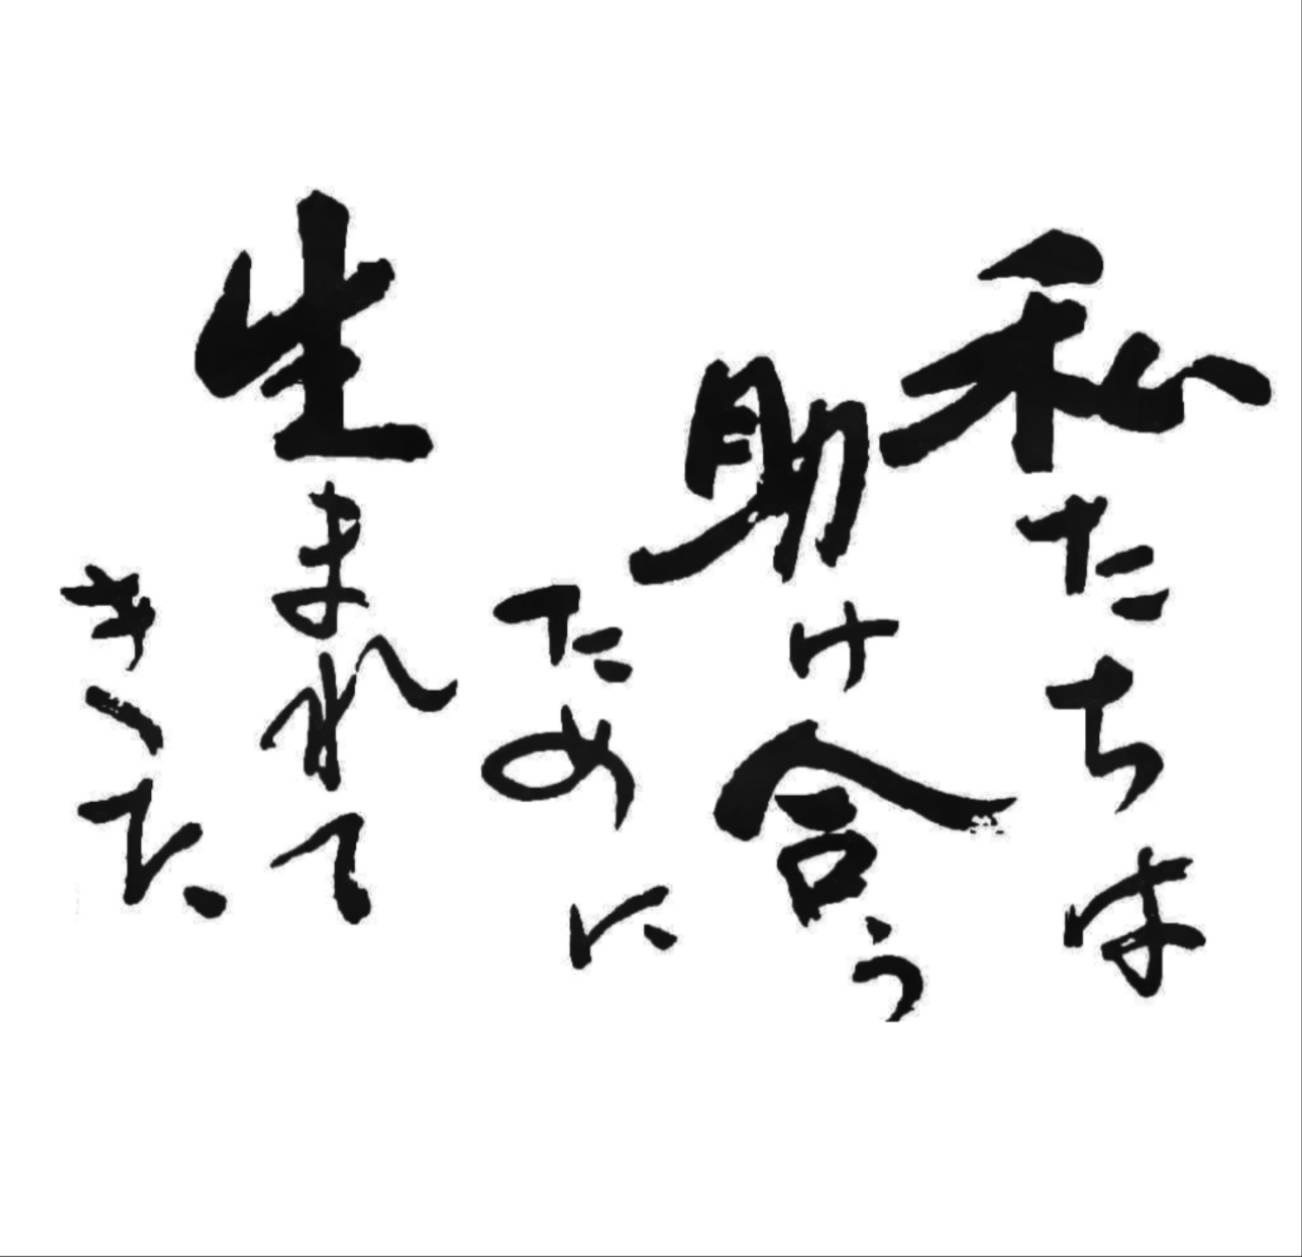 私たちは
助け合う
ために
生まれて
きた